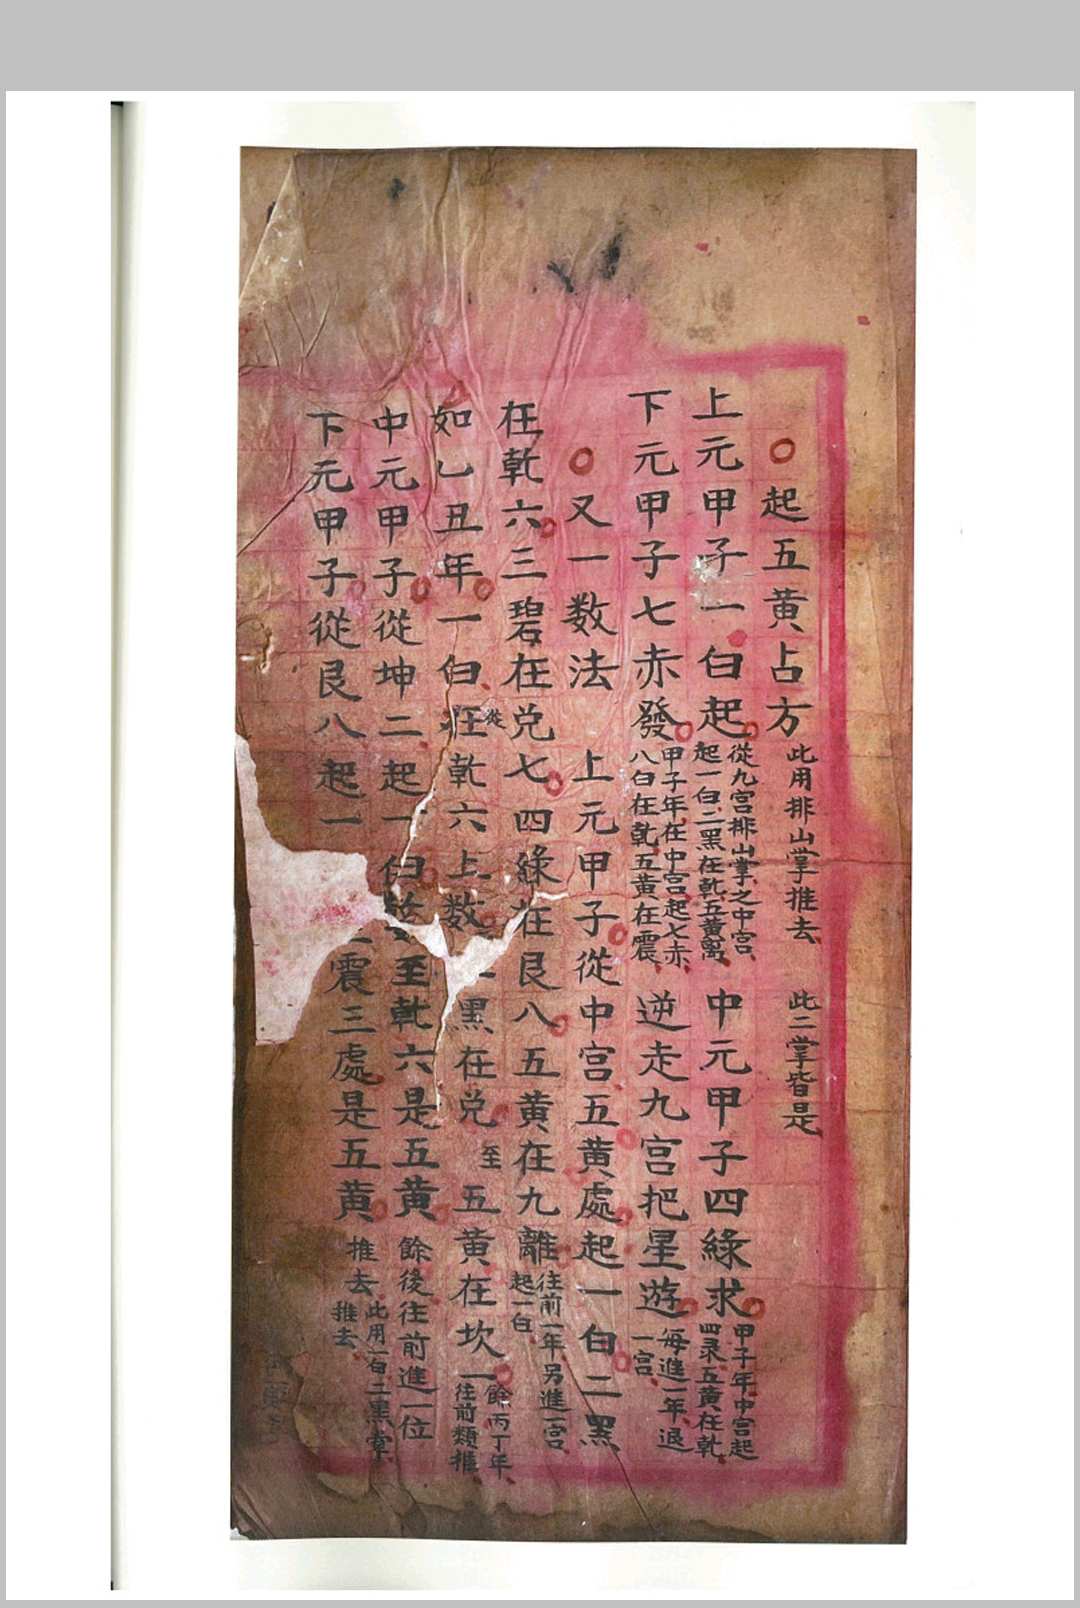 起五黄占方 此用排山掌推去 此二掌皆是
上元甲子一白起 從九宫排山掌之中宫起一白二黑在乾五黄离 中元甲子四綠求 甲子年中宫起四录五黄在乾
下元甲子七赤發 甲子年在中宫起七赤八白在乾五黄在震 逆走九宫把星遊 每進一年退一宫
又一数法 上元甲子從中宫五黄處起一白二黑
在乾六三碧在兑七四綠在艮八五黄在九離 往前一年另進一宫起一白
如乙丑年一白從在乾六上数 黑在兑至五黄在坎一 餘丙丁年往前類推
中元甲子從坤二起一白 至乾六是五黄 餘後往前進一位
下元甲子從艮八起一 震三處是五黄 推去 此用一白二黑掌推去